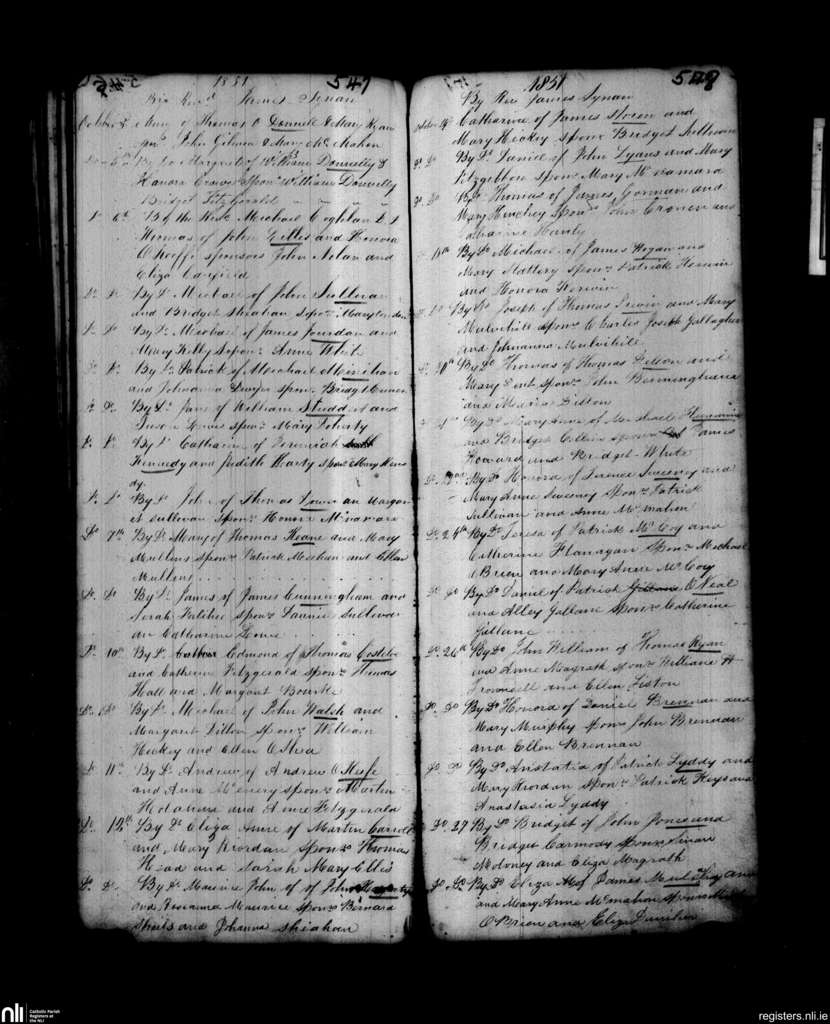 1851 547
By Revd James Synan
October 5 Mary of Thomas O Donnell & Mary Ryan
spns John Gilman & Mary Mc Mahon
Do 5th By Do Margaret of William Donnelly &
Honora sponr William Donnelly
Bridget Fitzgerald
Do 6th By the Revd Michael Coghlan
Thomas of John Gillis and Honora
O Keeffe sponsors John Nolan and
Eliza Canfield
Do Do By Do Michael of John Sullivan
and Bridget Sheahan Sponr Mary
Do Do By Do Michael of James Jourdan and
Mary Kelly Sponr Anne White
Do Do By Do Patrick of Michael
and Johanna Dwyer sponr Bridget
Do Do By Do Jane of William Studdert and
Susan Lewis sponr Mary Doherty
Do Do By Do Catharine of Jeremiah
Kennedy and Judith Harty sponr Mary Kenne
dy
Do Do By Do John of Thomas and Margar
et Sullivan sponr Honora McNamara
Do 7th By Do Mary of Thomas Keane and Mary
Mullens sponr Patrick Meehan and Ellen
Mullens
Do Do By Do James of James Cunningham and
Sarah sponr Daniel Sullivan
an Catharine
Do 10th By Do Edmond of Thomas Costelo
and Catherine Fitzgerald sponr Thomas
Hall and Margaret Bourke
Do Do By Do Michael of John Walsh and
Margaret Dillon sponr William
Hickey and Ellen O Shea
Do 11th By Do Andrew of Andrew O Keefe
and Anne McEnery sponr Martin
and Anne Fitzgerald
Do 12th By Do Eliza Anne of Martin Carroll
and Mary Riordan sponr Thomas
Head and Sarah Mary Ellis
Do Do By Do Maurice John of of John
and Roseanna Maurice sponr Bernard
Sheils and Johanna Sheahan
1851 548
By Rev James Synan
October Catharine of James and
Mary Hickey sponr Bridget Sullivan
Do Do By Do Daniel of John Lyons and Mary
Fitzgibbon sponr Mary McNamara
Do Do By Do Thomas of James Gorman and
Mary sponr John Cronin and
Catharine Hanly
By Do Michael of James Hogan and
Mary Slattery sponr Patrick Kerwin
and Honora Kerwin
By Do Joseph of Thomas and Mary
Mulvihill sponr Charles Joseph Gallagher
and Johanna Mulvihill
By Do Thomas of Thomas and
Mary sponr John Birmingham
and Maria Liston
By Do Mary Anne of Michael
and Bridget Collins sponr James
Howard and Bridget White
By Do Honora of Terence Sweeney and
Mary Anne Sweeney sponr Patrick
Sullivan and Anne McMahon
Do 24th By Do Teresa of Patrick McCoy and
Catherine Flanagan sponr Michael
OBrien and Mary Anne McCoy
Do Do By Do Daniel of Patrick O Neal
and Alley Gallane sponr Catherine
Gallane
Do 26th By Do John William of Thomas Ryan
and Anne Magrath sponr William H
and Ellen Liston
Do Do By Do Honora of Daniel Brennan and
Mary Murphy sponr John Brennan
and Ellen Brennan
Do Do By Do Anstatia of Patrick Lyddy and
Mary Riordan sponr Patrick Keys and
Anastasia Lyddy
Do 27 By Do Bridget of John Jones and
Bridget Carmody sponr
Moloney and Eliza Magrath
Do Do By Do Eliza of James and
and Mary Anne McMahon sponr
O Brien and Eliza
nli
Catholic Parish
Registers at
the NLI
registers.nli.ie